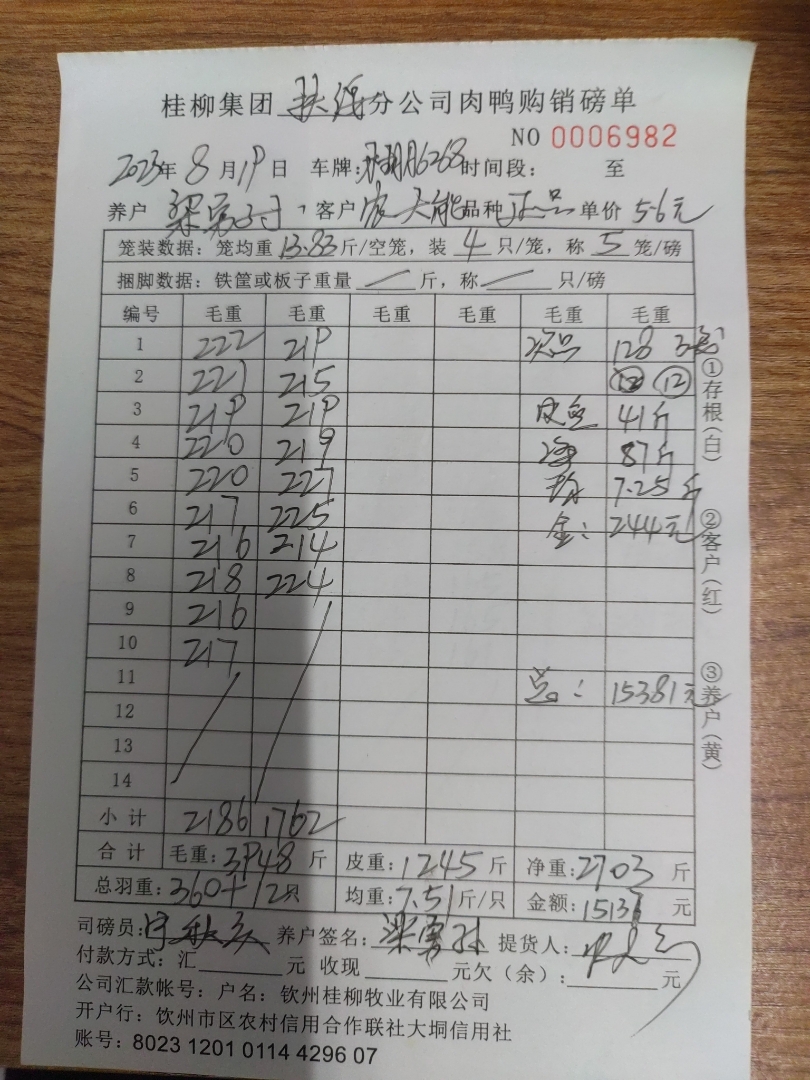 桂柳集团扶绥分公司肉鸭购销磅单
NO 0006982
2023年 8 月 19 日 车牌: 6268 时间段: 至
养户 梁 客户 品种 正品 单价 5.6元
笼装数据: 笼均重 13.83 斤/空笼, 装 4 只/笼, 称 5 笼/磅
捆脚数据: 铁筐或板子重量 斤, 称 只/磅
编号 毛重 毛重 毛重 毛重 毛重 毛重
1 222 219 次品 128 3
2 221 215 12
3 219 219 皮重 41斤
4 220 219 净 87斤
5 220 227 均 7.25斤
6 217 225 金: 244元
7 216 214
8 218 224
9 216
10 217
11 总: 15381元
12
13
14
小计 2186 1762
合计 毛重: 3948 斤 皮重: 1245 斤 净重: 2703 斤
总羽重: 360+12只 均重: 7.51 斤/只 金额: 15137 元
司磅员: 养户签名: 梁 提货人:
付款方式: 汇 元 收现 元欠(余): 元
公司汇款帐号: 户名: 钦州桂柳牧业有限公司
开户行: 钦州市区农村信用合作联社大垌信用社
账号: 8023 1201 0114 4296 07
①存根(白) ②客户(红) ③养户(黄)